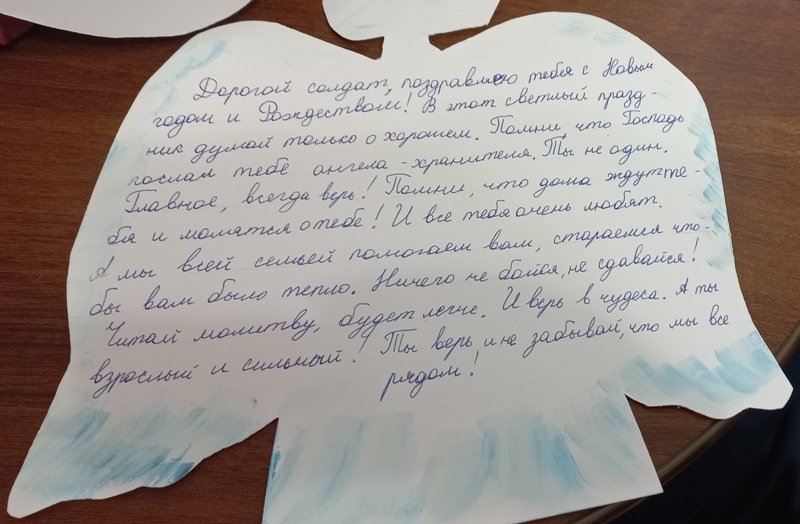 Дорогой солдат, поздравляю тебя с Новым
годом и Рождеством! В этот светлый празд-
ник думай только о хорошем. Помни, что Господь
послал тебе ангела-хранителя. Ты не один.
Главное, всегда верь! Помни, что дома ждут те-
бя и молятся о тебе! И все тебя очень любят.
А мы всей семьей помогаем вам, стараемся что-
бы вам было тепло. Ничего не бойся, не сдавайся!
Читай молитву, будет легче. И верь в чудеса. А ты
взрослый и сильный! Ты верь и не забывай, что мы все
рядом!